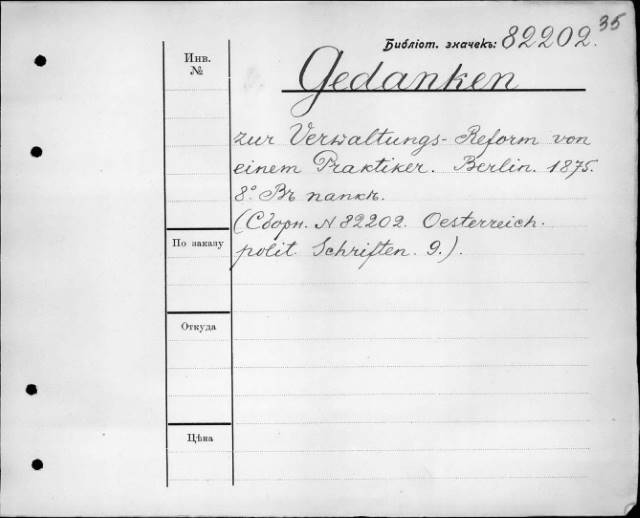 35
Библіот. значекъ: 82202.
Инв.
№
Gedanken
zur Verwaltungs-Reform von
einem Praktiker. Berlin. 1875.
8° Въ папкѣ.
(Сборн. N 82202. Oesterreich.
По заказу
polit. Schriften. 9.).
Откуда
Цѣна